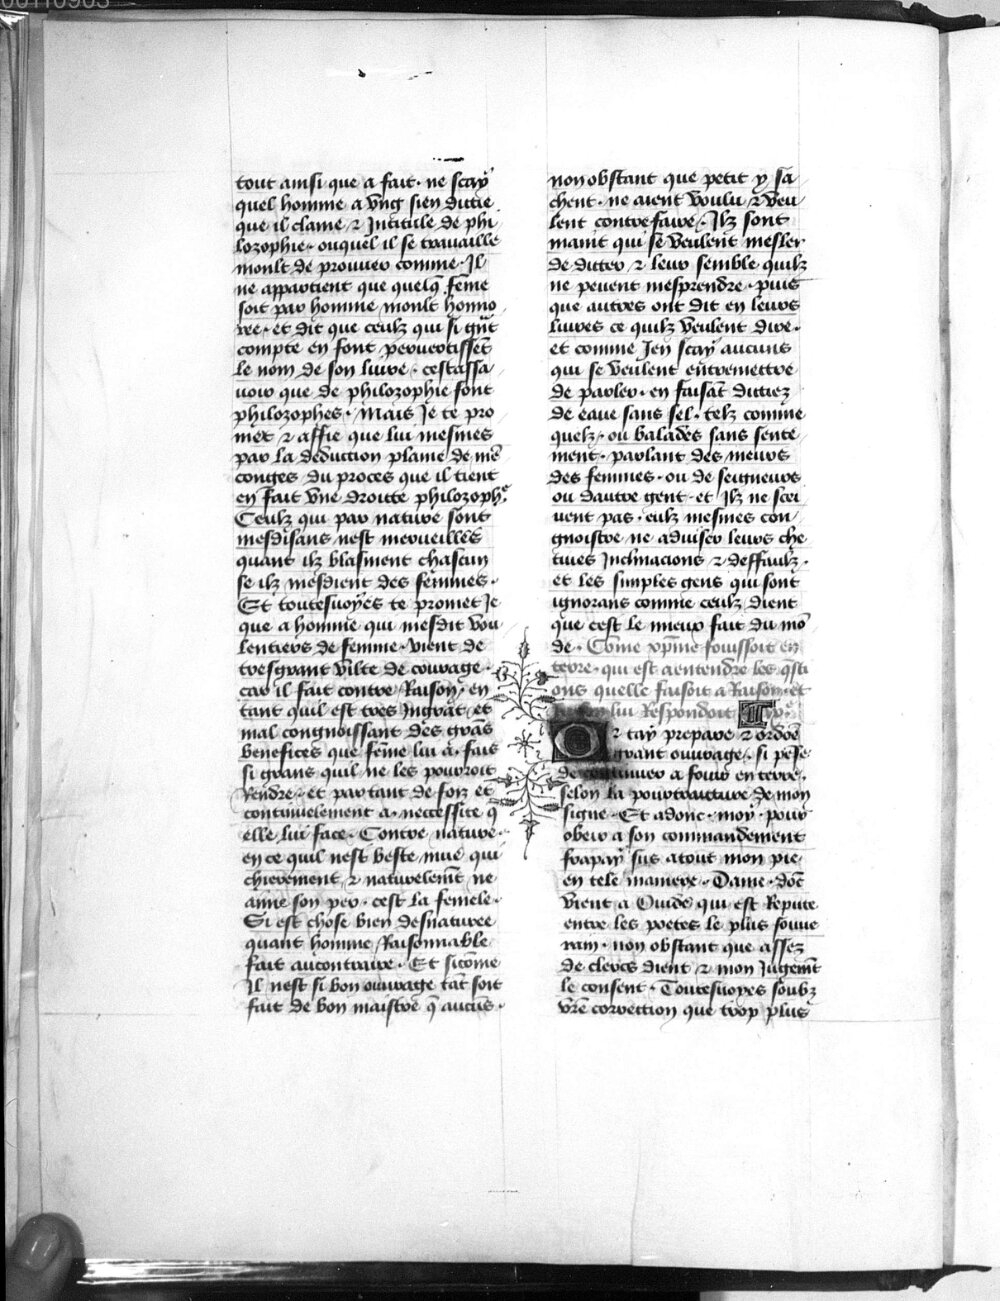 tout ainsi que a fait · ne scay
quel homme a vng sien dictie
que il clame ⁊ Intitule de phi
lozophie · ouquel il se trauaille
moult de prouuer comme · Il
ne appartient que quelq̃ feme
soit par homme moult honno
ree · et dit que ceulz qui si gñt
compte en font peruertissẽt
le nom de son liure · cestassa
uoir que de philozophie font
philozophes · Mais Je te pro
met ⁊ affie que lui mesmes
par la deduction plaine de mẽ
conges du proces que il tient
en fait vne droitte philozoph̾ᵉ
Ceulz qui par nature sont
mesdisans nest merueilles
quant ilz blasment chascun
se ilz mesdient des femmes ·
Et toutesuoyes te promet Je
que a homme qui mesdit vou
lentiers de femme · vient de
tresgrant vilte de courage ·
car il fait contre Raison · en
tant quil est tres Ingrat et
mal congnoissant des grãs
benefices que fẽme lui a · fais
si grans quil ne les pourroit
Rendre · et par tant de foiz et
continuelement a · neccessite q̃
elle lui face · Contre nature ·
en ce quil nest beste mue qui
chierement ⁊ naturelemẽt ne
aime son per · cest la femele ·
Si est chose bien desnaturee
quant homme Raisonnable
fait aucontraire · Et sicõme
Il nest si bon ouurage tãt soit
fait de bon maistre q̃ aucuns ·
non obstant que petit y sa
chent · ne aient voulu ⁊ veu
lent contrefaire · Ilz sont
maint qui se veulent mesler
de dicter ⁊ leur semble quilz
ne peuent mesprendre · puis
que autres ont dit en leurs
liures ce quilz veulent dire ·
et comme Jen scay aucuns
qui se veulent entremettre
de parler · en faisãt dictiez
de eaue sans sel · telz comme
quelz · ou balades sans sente
ment · parlant des meurs
des femmes · ou de seigneurs
ou dautre gent · et Ilz ne scei
uent pas · eulz mesmes con
gnoistre ne aduiser leurs che
tiues Inclinacions ⁊ deffaulz ·
et les simples gens qui sont
ignorans comme ceulz dient
que cest le mieux fait du mõ
de · Cõme xp̃ine fouissoit en
terre · qui est a entendre les q̃sti
ons quelle faisoit a Raison · et
lui Respondoit
Or tay prepare ⁊ ordõe
grant ouurage · si pẽse
de continuer a fouir en terre ·
selon la pourtraicture de mon
signe · Et adonc · moy · pour
obeir a son commandement
frapay sus atout mon pic
en tele maniere · Dame · dõt
vient a Ouide qui est Repute
entre les poetes le plus souue
rain · non obstant que assez
de clercs dient ⁊ mon Jugemẽt
le consent · Toutesuoyes soubz
vr̃e correction que trop plus